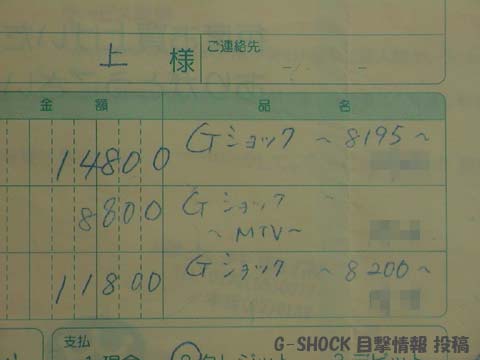 上 様 ご連絡先
金 額 品 名
14800 Gショック ~8195~
8800 Gショック
~MTV~
11800 Gショック ~8200~
支払
G-SHOCK 目撃情報 投稿